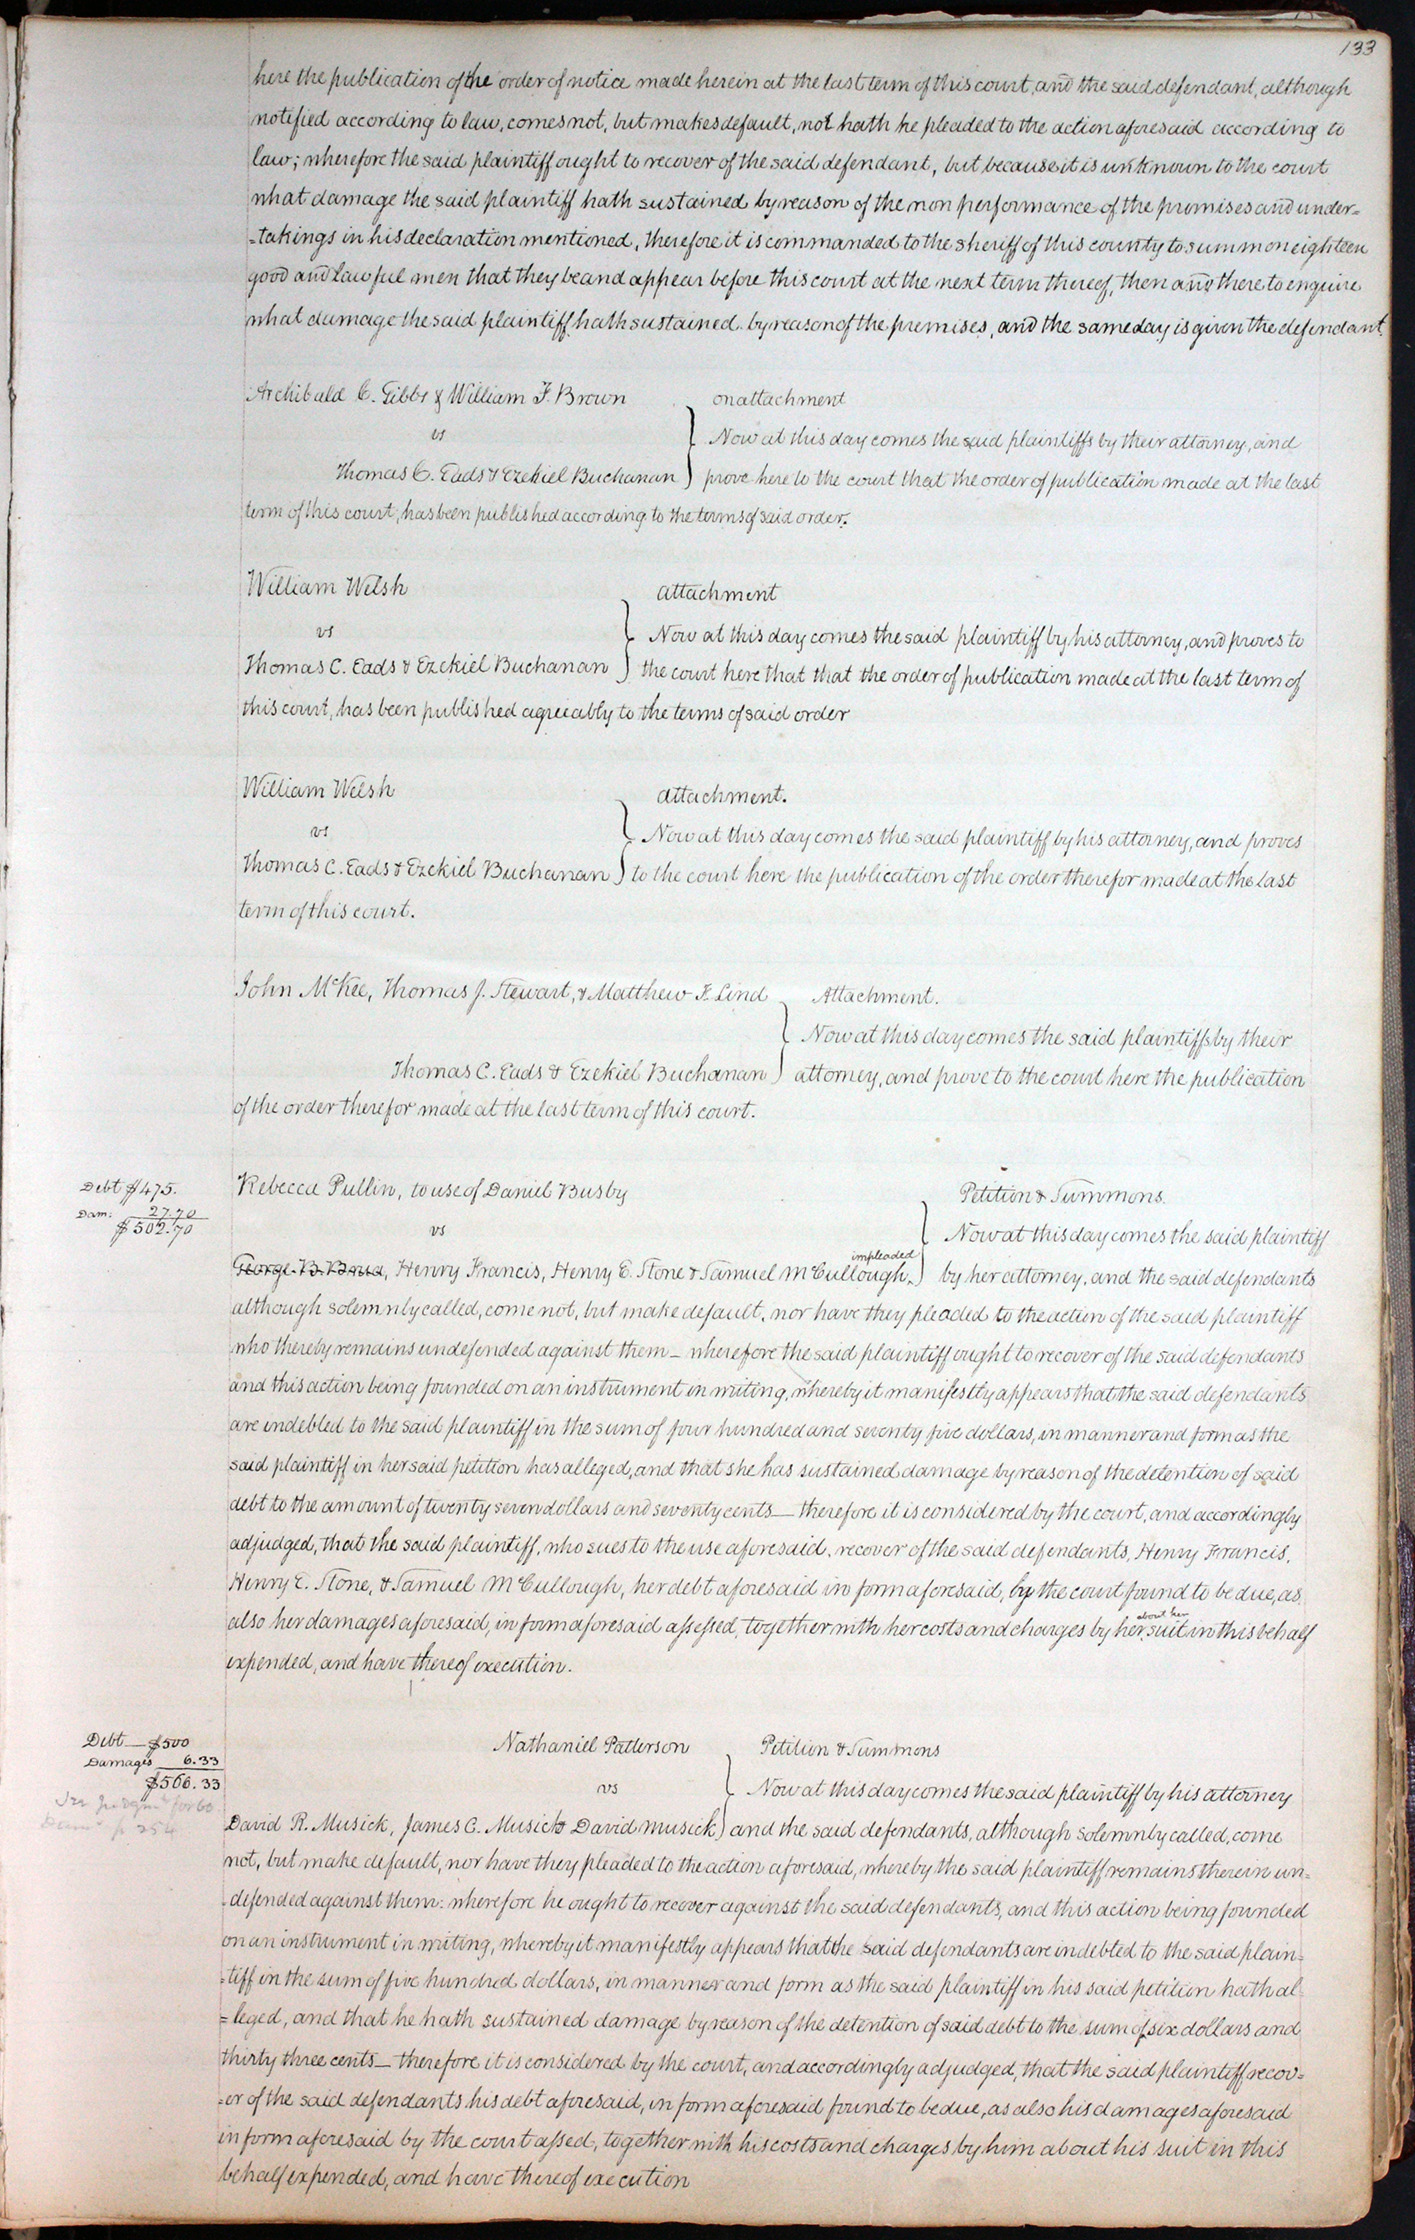 133
here the publication of the order of notice made herein at the last term of this court, and the said defendant, although
notified according to law, comes not, but makes default, not hath he pleaded to the action aforesaid according to
law; wherefore the said plaintiff ought to recover of the said defendant, but because it is unknown to the court
what damage the said plaintiff hath sustained by reason of the non performance of the promises and under=
=takings in his declaration mentioned, therefore it is commanded to the sheriff of this county to summon eighteen
good and lawful men that they be and appear before this court at the next term thereof, then and there to enquire
what damage the said plaintiff hath sustained by reason of the premises, and the same day is given the defendant.
Archibald C. Gibbs & William F. Brown on attachment
vs Now at this day comes the said plaintiffs by their attorney, and
Thomas C. Eads & Ezekiel Buchanan prove here to the court that the order of publication made at the last
term of this court, has been published according to the terms of said order.
William Welsh attachment
vs Now at this day comes the said plaintiff by his attorney, and proves to
Thomas C. Eads & Ezekiel Buchanan the court here that that the order of publication made at the last term of
this court, has been published agreeably to the terms of said order
William Welsh attachment.
vs Now at this day comes the said plaintiff by his attorney, and proves
Thomas C. Eads & Ezekiel Buchanan to the court here the publication of the order therefor made at the last
term of this court.
John McKee, Thomas J. Stewart, & Matthew F. Lind Attachment.
Now at this day comes the said plaintiffs by their
Thomas C. Eads & Ezekiel Buchanan attorney, and prove to the court here the publication
of the order therefor made at the last term of this court.
Debt $475.
Dam: 27.70
$502.70
Rebecca Pullin, to use of Daniel Busby Petition & Summons.
vs Now at this day comes the said plaintiff
impleaded
George B. , Henry Francis, Henry E. Stone & Samuel McCullough, by her attorney, and the said defendants
although solemnly called, come not, but make default, nor have they pleaded to the action of the said plaintiff
who thereby remains undefended against them — wherefore the said plaintiff ought to recover of the said defendants
and this action being founded on an instrument in writing, whereby it manifestly appears that the said defendants
are indebted to the said plaintiff in the sum of four hundred and seventy five dollars, in manner and form as the
said plaintiff in her said petition has alleged, and that she has sustained damage by reason of the detention of said
debt to the amount of twenty seven dollars and seventy cents — therefore it is considered by the court, and accordingly
adjudged, that the said plaintiff, who sues to the use aforesaid, recover of the said defendants, Henry Francis,
Henry E. Stone, & Samuel McCullough, her debt aforesaid in form aforesaid, by the court found to be due, as
also her damages aforesaid, in form aforesaid assessed, together with her costs and charges by her about her suit in this behalf
expended, and have thereof execution.
Debt — $500
Damages 6.33
$506.33
Nathaniel Patterson Petition & Summons
vs Now at this day comes the said plaintiff by his attorney
David R. Musick, James C. Musick & David Musick and the said defendants, although solemnly called, come
not, but make default, nor have they pleaded to the action aforesaid, whereby the said plaintiff remains therein un=
=defended against them: wherefore he ought to recover against the said defendants, and this action being founded
on an instrument in writing, whereby it manifestly appears that the said defendants are indebted to the said plain=
=tiff in the sum of five hundred dollars, in manner and form as the said plaintiff in his said petition hath al
=leged, and that he hath sustained damage by reason of the detention of said debt to the sum of six dollars and
thirty three cents — therefore it is considered by the court, and accordingly adjudged, that the said plaintiff recov=
=er of the said defendants his debt aforesaid, in form aforesaid found to be due, as also his damages aforesaid
in form aforesaid by the court assed, together with his costs and charges by him about his suit in this
behalf expended, and have thereof execution